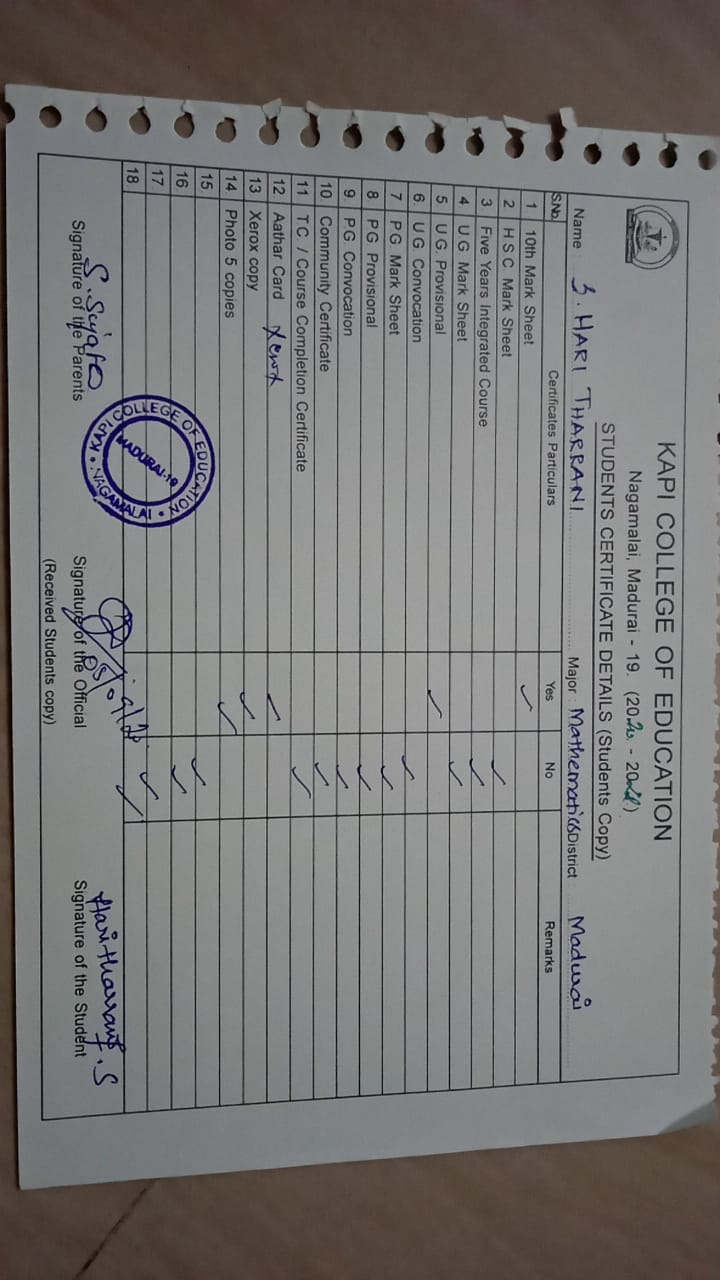 KAPI COLLEGE OF EDUCATION
Nagamalai, Madurai - 19. (2020 - 2022)
STUDENTS CERTIFICATE DETAILS (Students Copy)
Name : S. HARI THARRANI Major : Mathematics District Madurai
S.No. Certificates Particulars Yes No Remarks
1 10th Mark Sheet ✓
2 H S C Mark Sheet ✓
3 Five Years Integrated Course ✓
4 U G Mark Sheet ✓
5 U G. Provisional ✓
6 U G Convocation ✓
7 P G Mark Sheet ✓
8 P G Provisional ✓
9 P G Convocation ✓
10 Community Certificate ✓
11 T.C. / Course Completion Certificate ✓
12 Aathar Card Xerox ✓
13 Xerox copy ✓
14 Photo 5 copies ✓
15 ✓
16 ✓
17 ✓
18 ✓
KAPI COLLEGE OF EDUCATION
MADURAI-19
NAGAMALAI
Hari tharrani. S
Signature of the Parents Signature of the Official Signature of the Student
(Received Students copy)